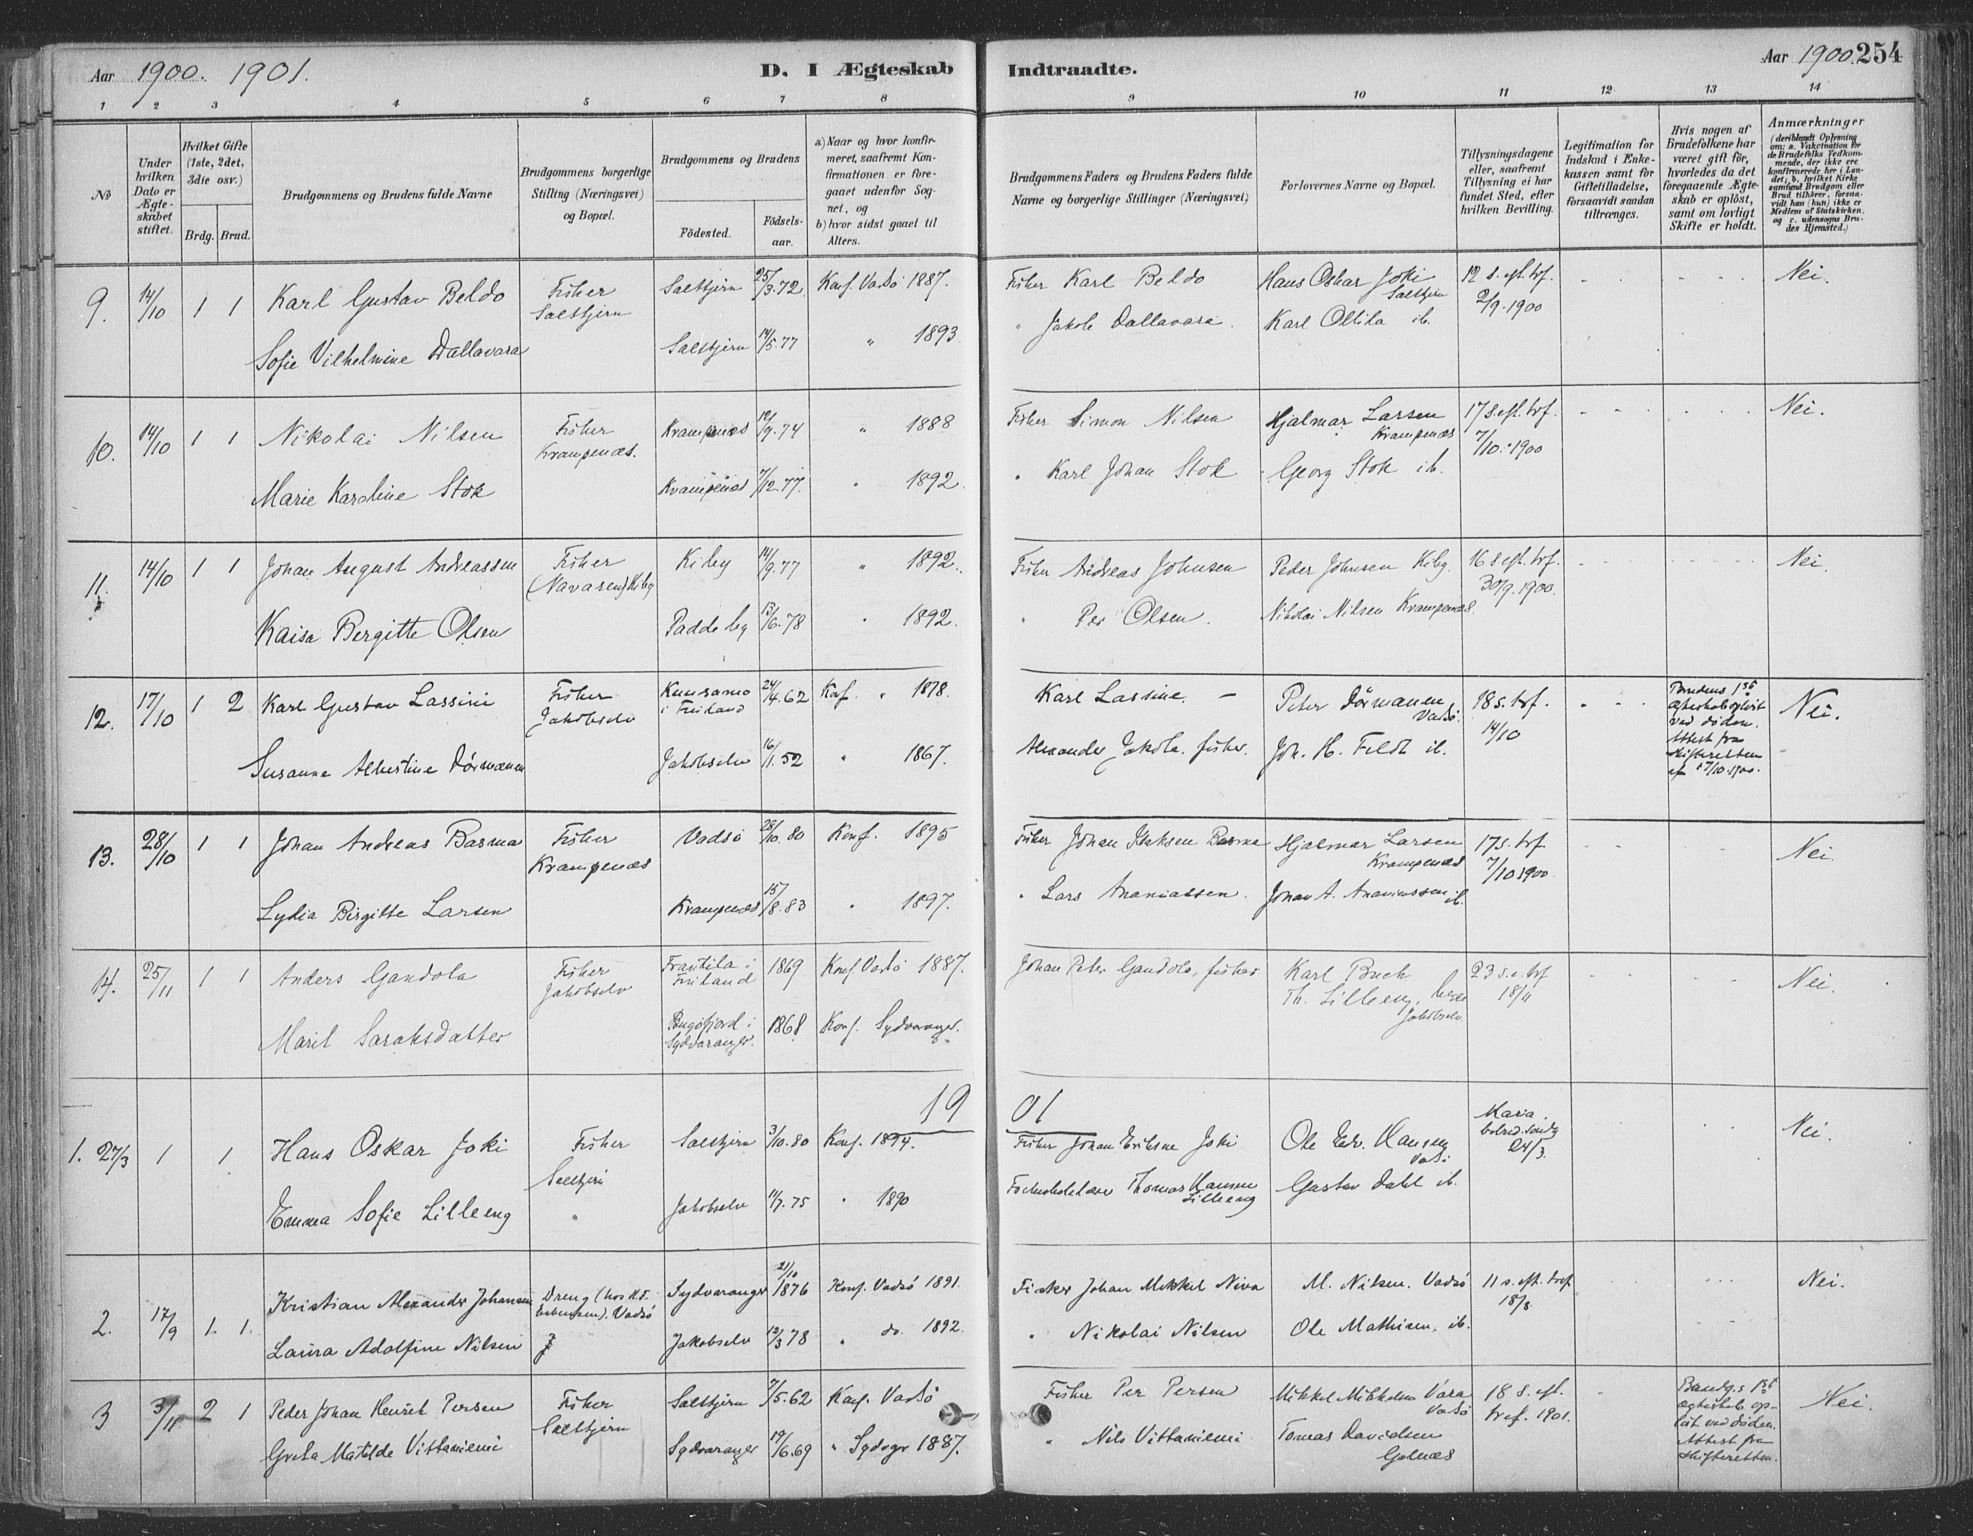 Aar 1900. 1901.
D. I Ægteskab Indtraadte.
Aar 1900. 254
1 2 3 4 5 6 7 8 9 10 11 12 13 14
No
Under hvilken Dato er Ægteskabet stiftet.
Hvilket Gifte (1ste, 2det, 3die osv.)
Brdg. Brud.
Brudgommens og Brudens fulde Navne
Brudgommens borgerlige Stilling (Næringsvei) og Bopæl.
Brudgommens og Brudens
Fødested. Fødselsaar.
a) Naar og hvor konfirmeret, saafremt Konfirmationen er foregaaet udenfor Sognet, og
b) hvor sidst gaael til Alters.
Brudgommens Faders og Brudens Faders fulde Navne og borgerlige Stillinger (Næringsvei)
Forlovernes Navne og Bopæl.
Tillysningsdagene eller, saafremt Tillysning ei har fundet Sted, efter hvilken Bevilling.
Legitimation for Indskud i Enkekassen samt for Giftetilladelse, forsaavidt saadan tiltrænges.
Hvis nogen af Brudefolkene har været gift før, hvorledes da det foregaaende Ægteskab er opløst, samt om lovligt Skifte er holdt.
Anmærkninger
(deriblandt Oplysning om: a. Vakcination for de Brudefolks Vedkommende, der ikke ere konfirmerede her i Landet; b. hvilket Kirkesamfund Brudgom eller Brud tilhører, forsaavidt han (hun) ikke er Medlem af Statskirken, og c. udensogns Brudes Hjemsted.)
9. 14/10 1 1 Karl Gustav Beldo Fisker Saltjern Saltjern 25/3.72 Konf. Vadsö 1887. Fisker Karl Beldo Hans Oskar Joki Saltjern 12 s. eft. trf. 2/9.1900 Nei.
Sofie Vilhelmine Dallavara Saltjern 14/5.77 " 1893 " Jakob Dallavara. Karl Ollila ib.
10. 14/10 1 1 Nikolai Nilsen Fisker Krampenæs. Krampenæs 12/9.74 " 1888 Fisker Simon Nilsen Hjalmar Larsen Krampenæs 17 s. eft. trf. 7/10.1900 Nei.
Marie Karoline Stok Krampenæs 7/12.77. " 1892. " Karl Johan Stok Georg Stok ib.
11. 14/10 1 1 Johan August Andreassen Fisker (Navaren) Kiby Kiby 14/9.77 " 1892. Fisker Andreas Johnsen Peder Johnsen Kibg. 16 s. eft. trf. 30/9.1900. Nei.
Kaisa Bergitte Olsen Paddeby 13/6.78 " 1892. " Per Olsen. Nikolai Nilsen Krampenæs.
12. 17/10 1 2 Karl Gustav Lassini Fisker Jakobselv Kuusamo i Finland 24/4.62 Konf. " 1878. Karl Lassine. — Peter Dørmænen Vadsö. 18 s. trf. 14/10 Brudens 1ste ægteskab opløst ved døden. Attest fra skifteretten af 17/10.1900. Nei.
Susanne Albertine Dørmænen Jakobselv 16/11.52 " 1867. Alexander Jakola. fisker. Joh. H. Feldt ib.
13. 28/10 1 1 Johan Andreas Basma Fisker Krampenæs Vadsö 28/10.80 Konf. 1895 Fisker Johan Isaksen Basma Hjalmar Larsen Krampenæs 17 s. trf 7/10 1900. Nei.
Lydia Birgitte Larsen Krampenæs 15/8.83 " 1897. " Lars Ananiassen. Johan A. Ananiassen ib.
14. 25/11 1 1 Anders Gandola Fisker Jakobselv Frantila i Finland 1869 Konf Vadsö 1887. Johan Peter Gandola, fisker Karl Buck 23 s. e. trf 18/11 Nei.
Marit Saraksdatter Bugöfjord i Sydvaranger. 1868 Konf. Sydvaranger. Th. Lilleeng, begge Jakobselv
1901
1. 27/3 1 1 Hans Oskar Joki Fisker Saltjern Saltjern 3/10.80 Konf. 1894. Fisker Johan Eriksen Joki Ole Edv. Hansen Vadsö Maria bebud. sönd. 24/3. Nei.
Emma Sofie Lilleeng " Jakobselv 11/7.75 " 1890 Thomas Hansen Lilleeng Gustav Dahl ib.
2. 17/9 1. 1. Kristian Alexander Johansen Dreng (hos K.F. Esbensen). Vadsö Sydvaranger 21/10 1876 Konf. Vadsö 1891. Fisker Johan Mikkel Niva M. Nilsen. Vadsö 11 s. eft. tref 18/8 Nei.
Laura Adolfine Nilsen Jakobselv 12/3 78 " do. 1892. " Nikolai Nilsen Ole Mathisen, ib.
3 3/11 2 1 Peder Johan Henrik Persen Fisker Saltjern Saltjern 7/5.62 Konf. Vadsö Fisker Per Persen Mikkel Mikkelsen Vara Vadsö 18 s. eft. tref. 1901. Brudg.s 1ste ægteskab opløst ved døden. Attest fra skifteretten. Nei.
Greta Matilde Vittaniemi Sydvaranger 19/6.69 " Sydvgr 1887. " Nils Vittaniemi Tomas Davidsen Golnæs